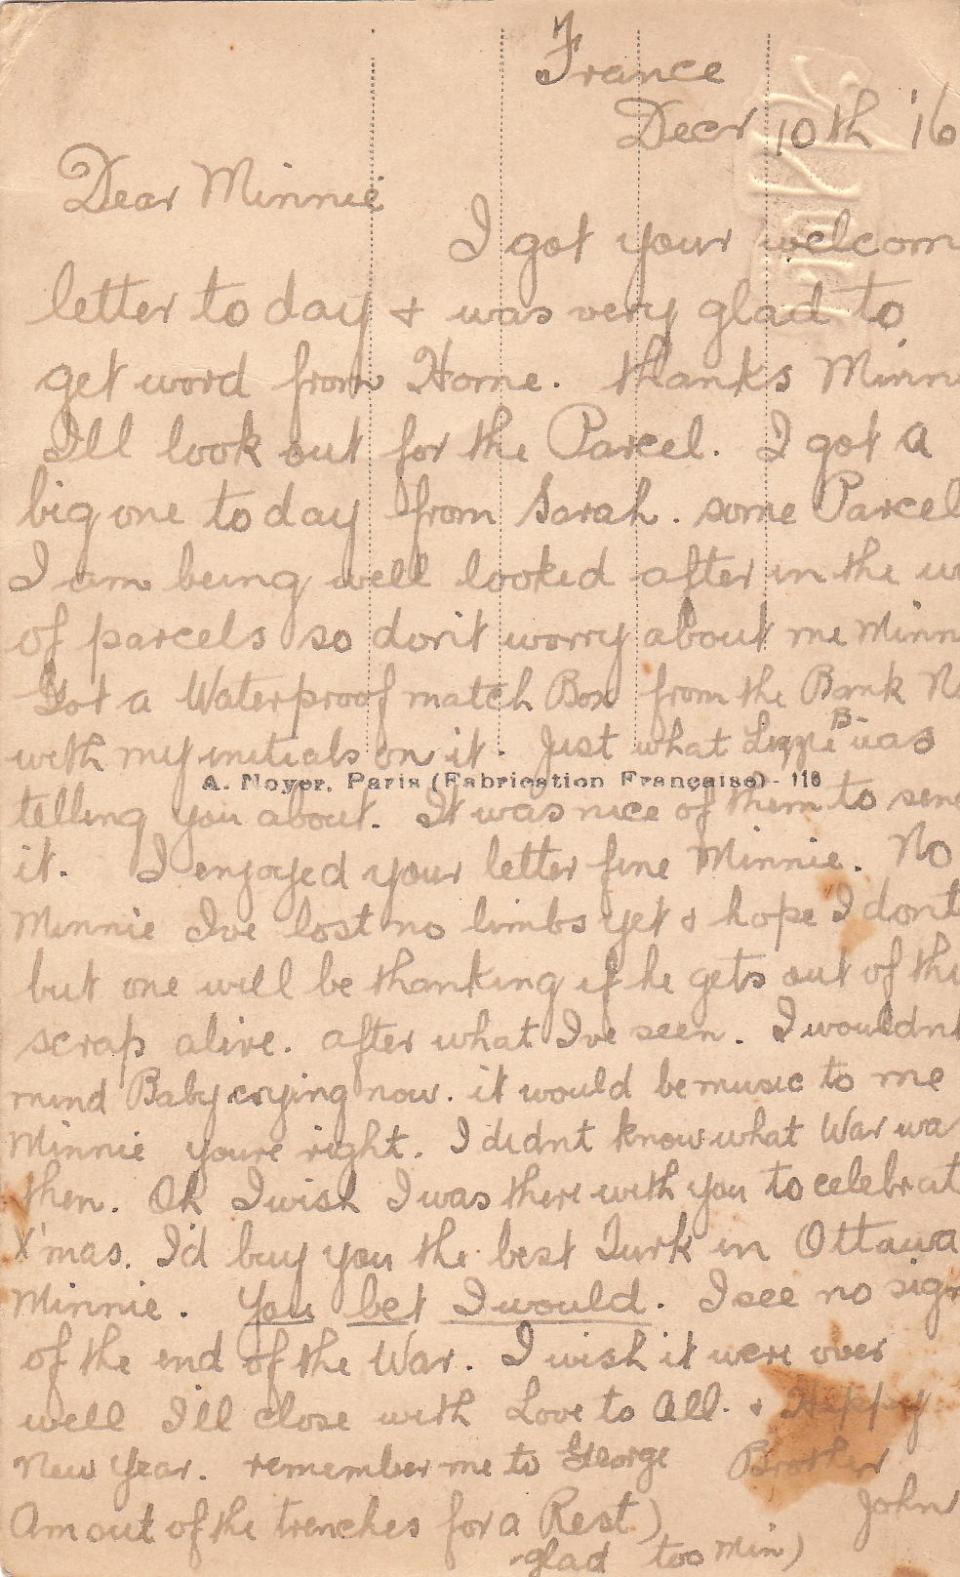 France
Decr 10th '16
Dear Minnie
I got your welcom
letter to day & was very glad to
get word from Home. thanks Minn
I'll look out for the Parcel. I got a
big one to day from Sarah. some Parcel
I am being well looked after in the w
of parcels so don't worry about me Minn
Got a Waterproof match Box from the Bank N
with my initials on it. Just what B- was
A. Noyer, Paris (Fabrication Française) - 118
telling you about. It was nice of them to sen
it. I enjoyed your letter fine Minnie. No
Minnie Ive lost no limbs yet & hope I dont
but one will be thanking if he gets out of thi
scrap alive. after what I've seen. I wouldnt
mind Baby crying now. it would be music to me
Minnie youre right. I didnt know what War wa
then. Oh I wish I was there with you to celebrat
X'mas. I'd buy you the best Turk in Ottawa
Minnie. You bet I would. I see no sign
of the end of the War. I wish it were over
well I'll close with Love to All. & Happy
New Year. remember me to George Brother
John
Am out of the trenches for a Rest)
glad too Min)